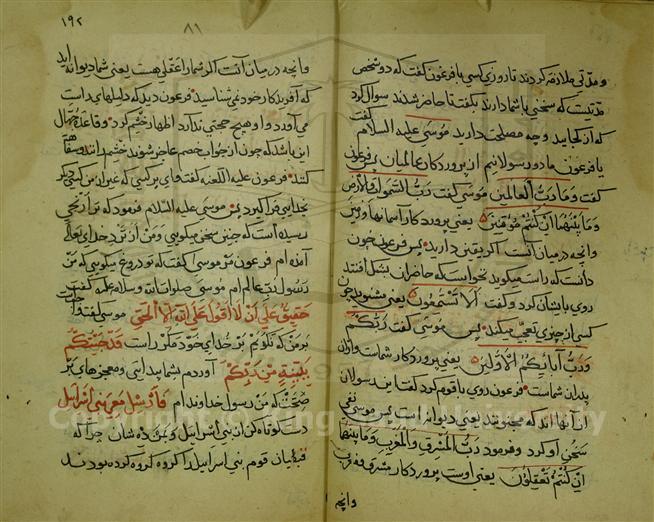 و مدتی ملازمه کردند تا روزی کسی با فرعون گفت که دو شخص
مدتیست که سخنی با شما دارند بگفت تا حاضر شدند سوال کرد
که از کجایید و چه مصلحت دارید موسی علیه السلام گفت
یا فرعون ما دو رسولانیم از پروردکار عالمیان پس فرعون
گفت و ما رب العالمین موسی گفت رب السموات والارض
و ما بینهما ان کنتم موقنین یعنی پروردکار آسمانها و زمین
وانچه در میان آنست اکر یقین دارید پس فرعون چون
دانست که راست میکوید نخواست که حاضران بشک افتند
روی بایشان کرد و گفت الا تستمعون یعنی می شنوید چون
کسی از چیزی تعجب میکند پس موسی گفت ربکم
و رب آبائکم الاولین یعنی پروردکار شماست و از آن
پدران شماست فرعون روی با قوم کرد گفت این رسولان
از آنها اند که مجنونند یعنی دیوانه است پس موسی نفی
سخن او کرد و فرمود رب المشرق والمغرب وما بینهما
ان کنتم تعقلون یعنی اوست پروردکار مشرق و مغرب
وانچه
۱۹۲
۸۱
وانچه در میان آنست اکر شما را عقلی هست یعنی شما دیوانه اید
که آفریدکار خود نمی شناسید فرعون دید که دلیلهای راست
می آورد و او هیچ حجتی ندارد اظهار خشم کرد و قاعده جهال
این باشد که چون از جواب خصم عاجز شوند خشم رانند و سفاهة
کنند فرعون علیه اللعنه گفت وای بر کسی که غیر از من کسی دیکر
بخدایی فرا کیرد پس موسی علیه السلام فرمود که ترا رنجی
رسیده است که چنین سخن میکویی و من از نزد خدای تعالی
آمده ام فرعون مر موسی را گفت که تو دروغ میکویی که من
رسول رب عالم ام موسی صلوات الله وسلامه علیه گفت
حقیق علی ان لا اقول علی الله الا الحق موسی گفت واجب
بر من که نکویم بر خدای خود مکر راست قد جئتکم
ببینة من ربکم آوردم بشما بیداستی و معجزهای بر
صحت که من رسول خداوندم ام فارسل معی بنی اسرائیل
دست کوتاه کن از بنی اسرائیل و بمن ده شان چرا که
قبطیان قوم بنی اسرائیل را کروه کروه کرده بودند
Copyright © King Saud University